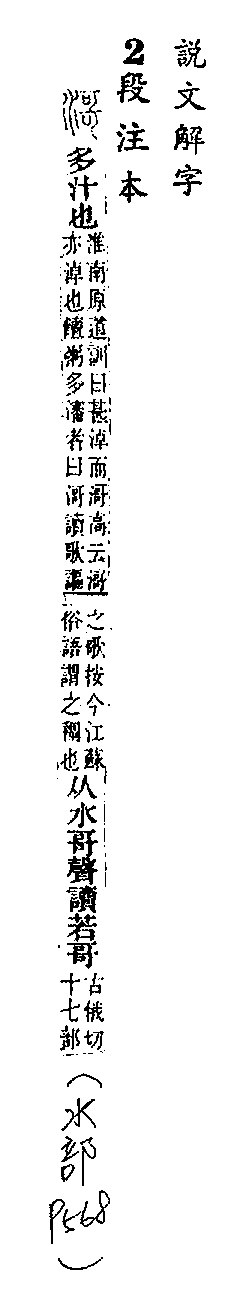 説文解字
2段注本
滒多汁也淮南原道訓曰甚淖而滒高云滒亦淖也饘粥多瀋者曰滒讀歌謳之歌按今江蘇俗語謂之稠也从水哥聲讀若哥古俄切十七部(水部P568)